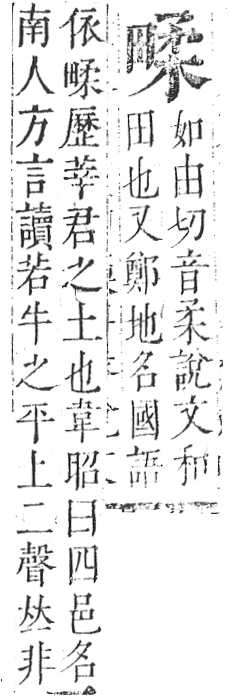 䐓如由切音柔說文和
田也又鄭地名國語
依䐓歷莘君之土也韋昭曰四邑名
南人方言讀若牛之平上二聲𠀤非